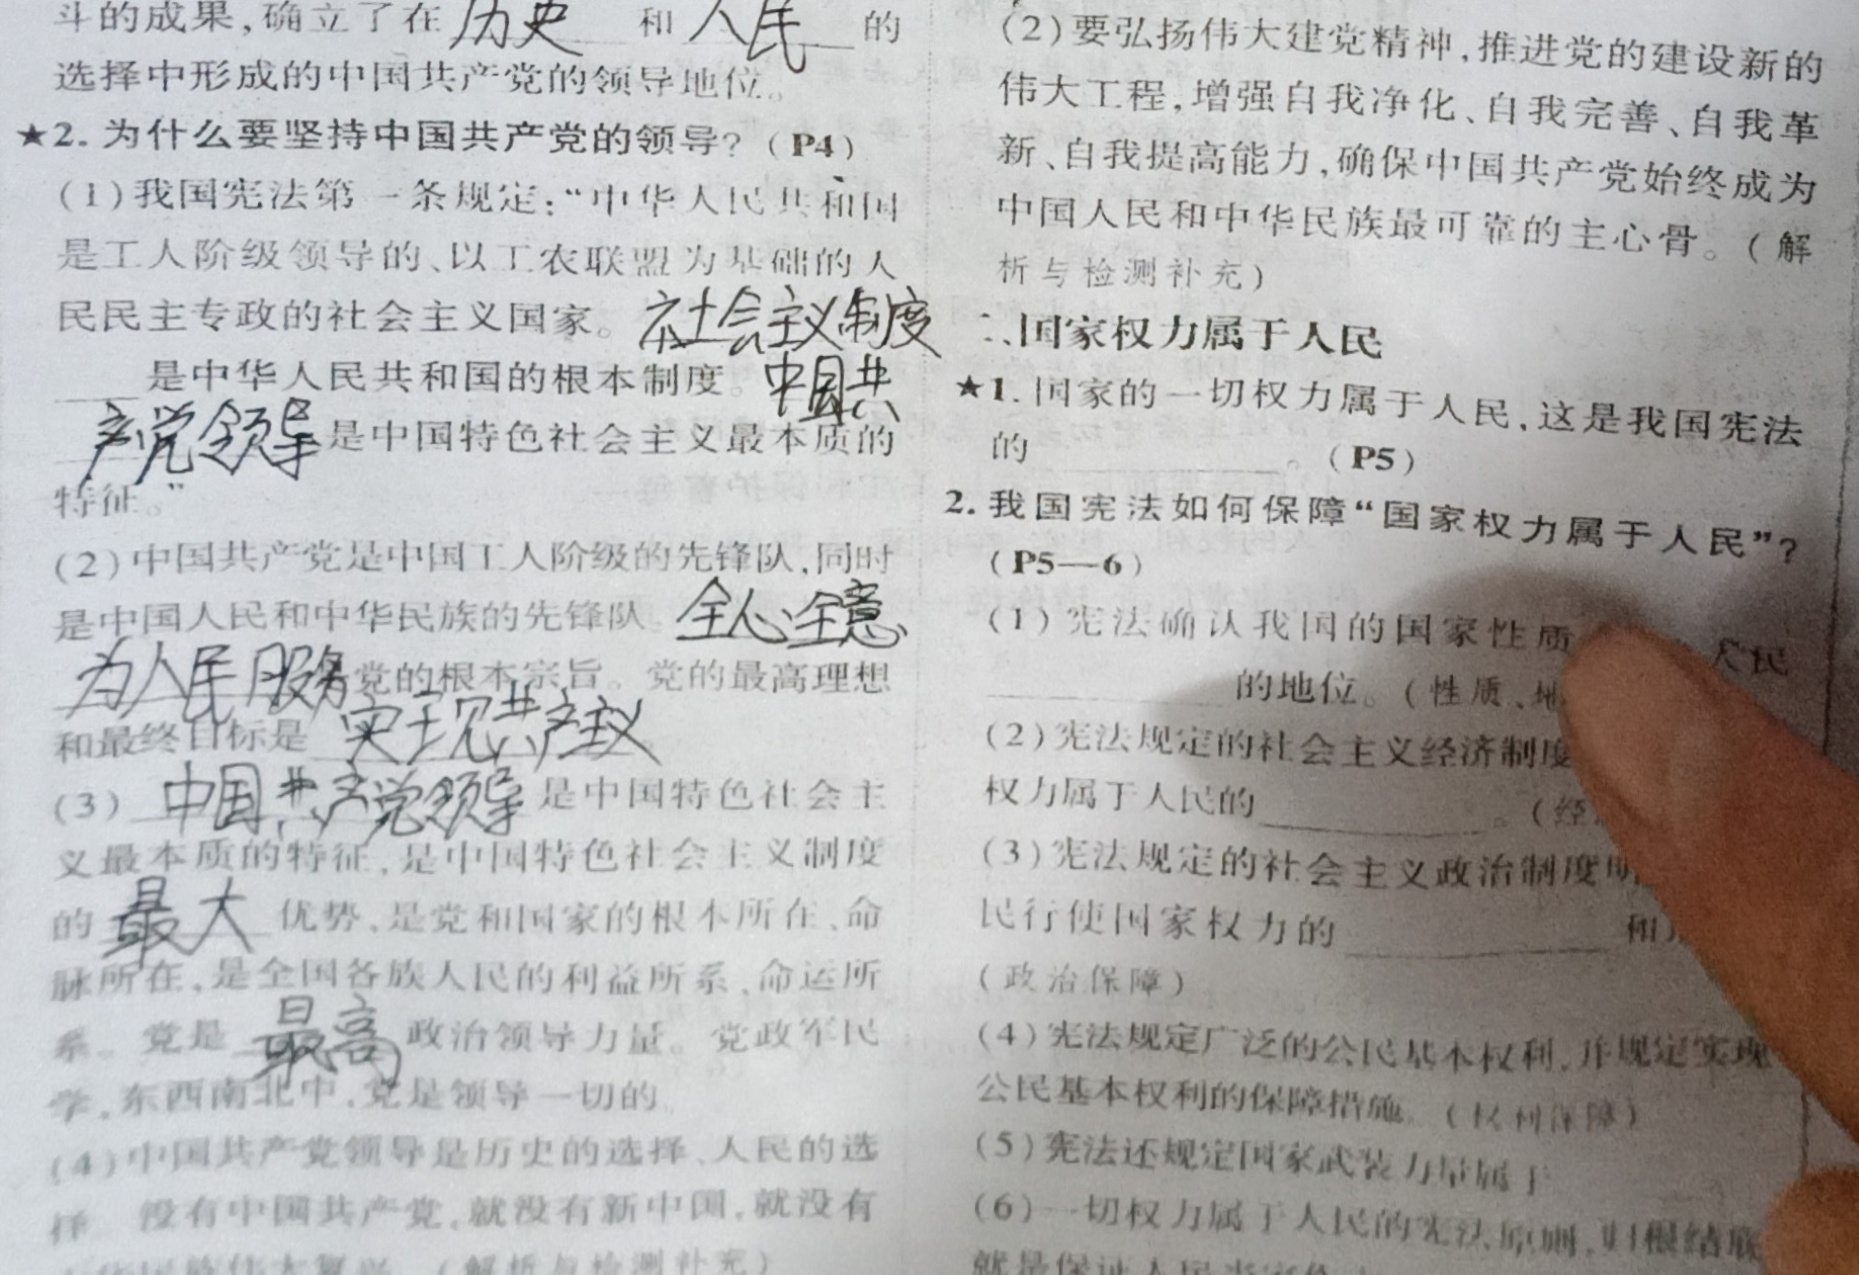 斗的成果,确立了在 历史 和 人民 的
选择中形成的中国共产党的领导地位。
★2.为什么要坚持中国共产党的领导?(P4)
(1)我国宪法第一条规定:“中华人民共和国
是工人阶级领导的、以工农联盟为基础的人
民民主专政的社会主义国家。社会主义制度
是中华人民共和国的根本制度。中国共
产党领导是中国特色社会主义最本质的
特征。”
(2)中国共产党是中国工人阶级的先锋队,同时
是中国人民和中华民族的先锋队。全心全意
为人民服务党的根本宗旨。党的最高理想
和最终目标是 实现共产主义
(3) 中国共产党领导 是中国特色社会主
义最本质的特征,是中国特色社会主义制度
的 最大 优势,是党和国家的根本所在、命
脉所在,是全国各族人民的利益所系、命运所
系。党是 最高 政治领导力量。党政军民
学,东西南北中,党是领导一切的
(4)中国共产党领导是历史的选择、人民的选
择 没有中国共产党,就没有新中国,就没有
(解析与检测补充)
(2)要弘扬伟大建党精神,推进党的建设新的
伟大工程,增强自我净化、自我完善、自我革
新、自我提高能力,确保中国共产党始终成为
中国人民和中华民族最可靠的主心骨。(解
析与检测补充)
二、国家权力属于人民
★1.国家的一切权力属于人民,这是我国宪法
的 。(P5)
2.我国宪法如何保障“国家权力属于人民”?
(P5—6)
(1)宪法确认我国的国家性质 人民
的地位。(性质、地
(2)宪法规定的社会主义经济制度
权力属于人民的 。(经
(3)宪法规定的社会主义政治制度明
民行使国家权力的 和
(政治保障)
(4)宪法规定广泛的公民基本权利,并规定实现
公民基本权利的保障措施。(权利保障)
(5)宪法还规定国家武装力量属于
(6)一切权力属于人民的宪法原则,归根结底
就是保证人民当家作